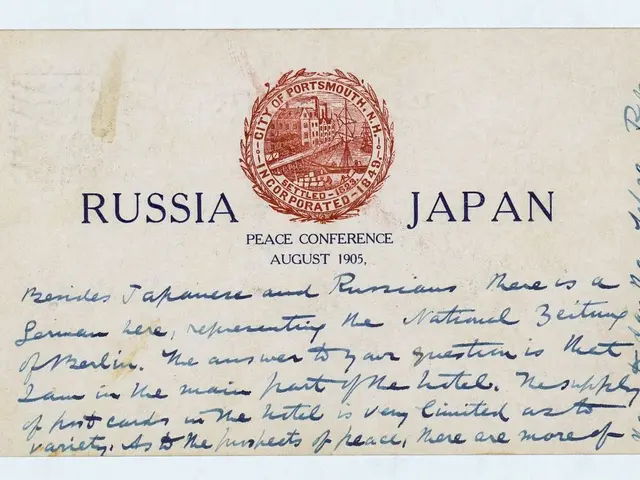 CITY OF PORTSMOUTH, N.H.
SETTLED - 1623
INCORPORATED - 1849.
RUSSIA JAPAN
PEACE CONFERENCE
AUGUST 1905,
Besides Japanese and Russians there is a
German here, representing the National Zeitung
of Berlin. The answer to your question is that
I am in the main part of the hotel. The supply
of post cards in the hotel is very limited as to
variety. As to the prospects of peace, there are more of